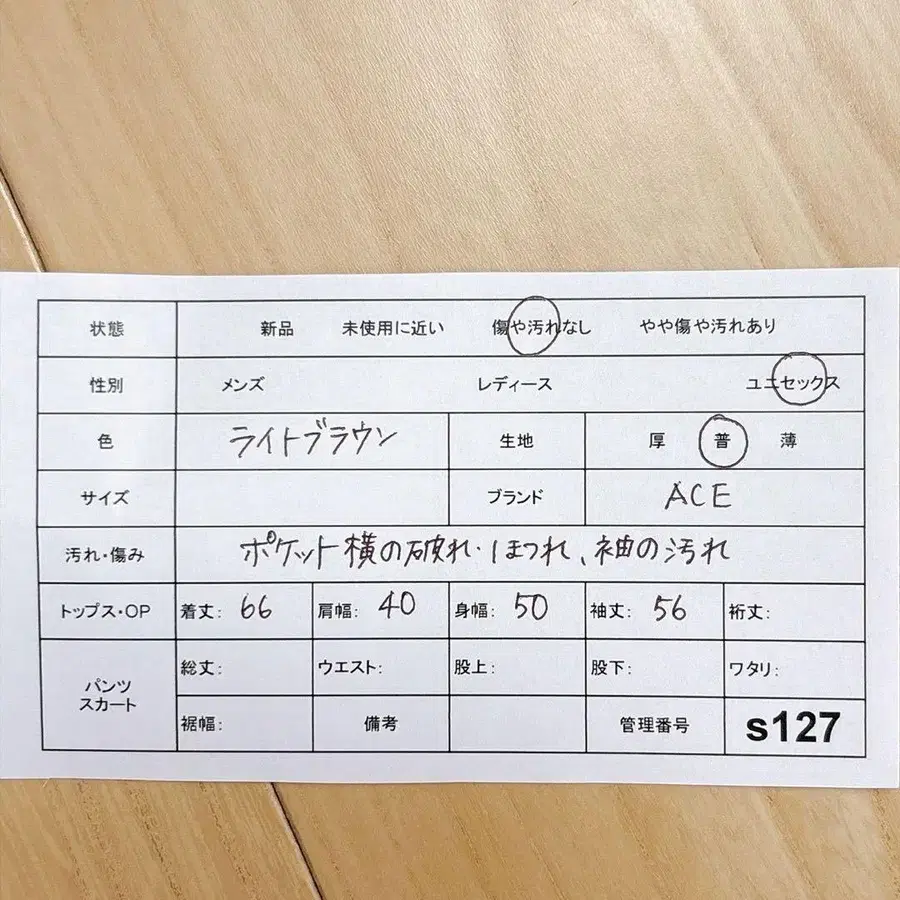 状態 新品 未使用に近い 傷や汚れなし やや傷や汚れあり
性別 メンズ レディース ユニセックス
色 ライトブラウン 生地 厚 普 薄
サイズ ブランド ACE
汚れ・傷み ポケット横の破れ・ほつれ、袖の汚れ
トップス・OP 着丈: 66 肩幅: 40 身幅: 50 袖丈: 56 裄丈:
パンツ スカート 総丈: ウエスト: 股上: 股下: ワタリ:
裾幅: 備考 管理番号 s127